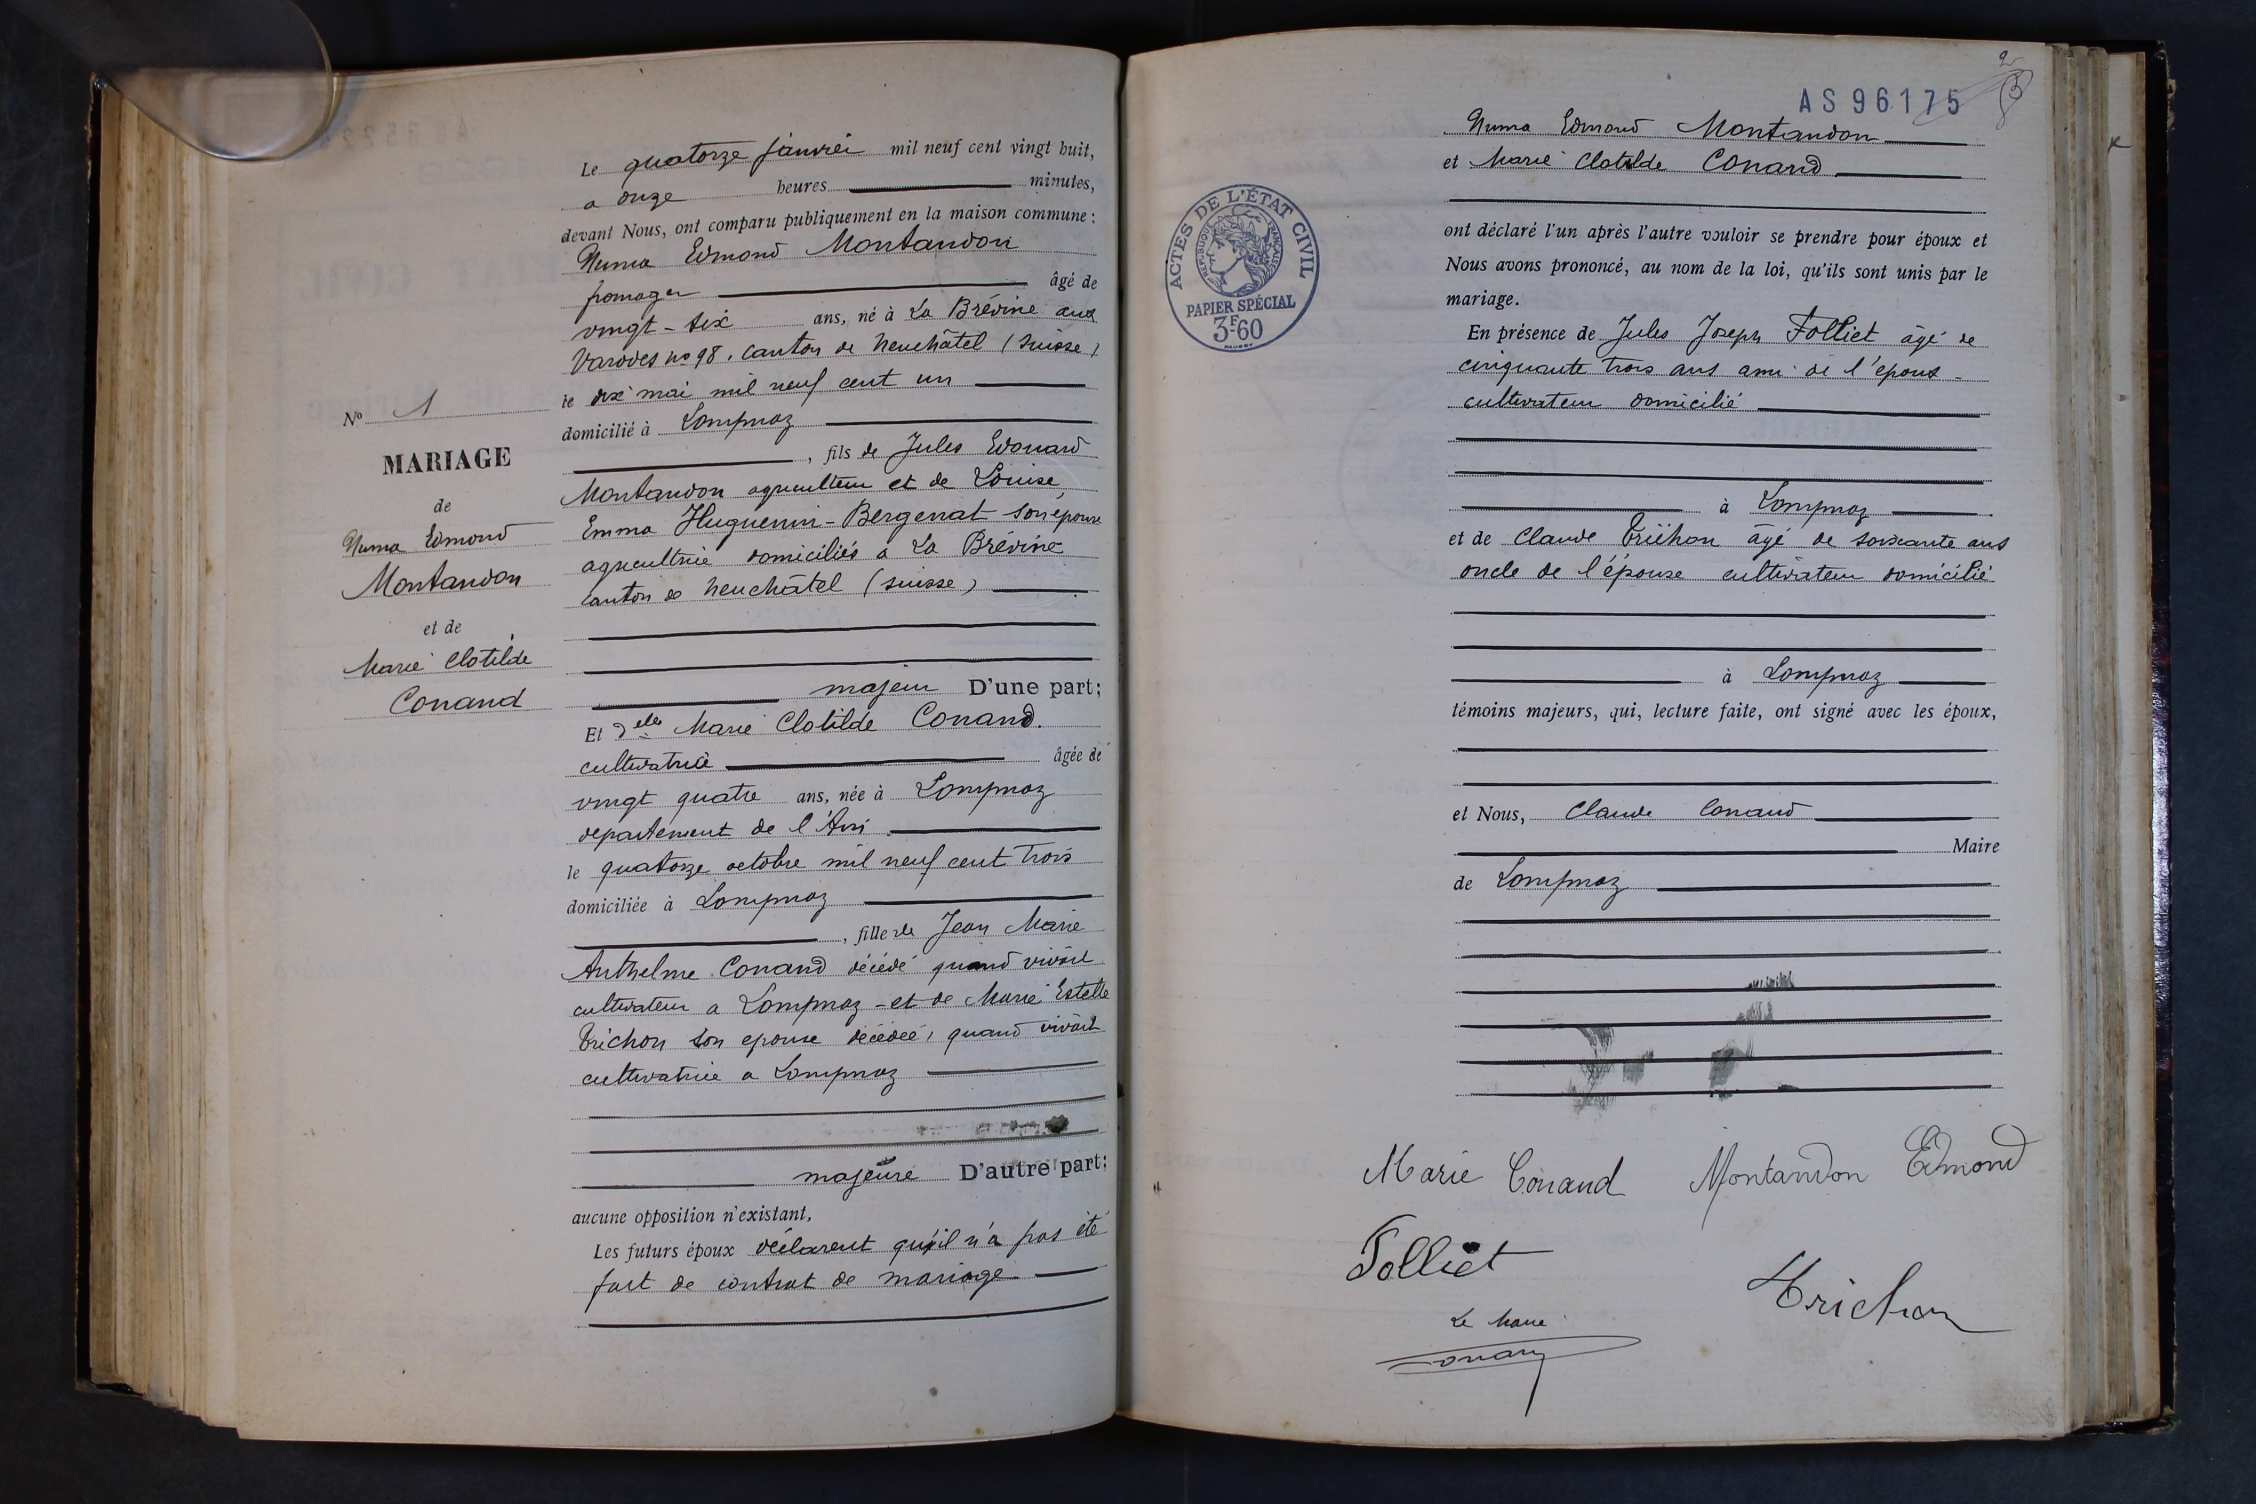 Le quatorze janvier mil neuf cent vingt huit,
a onze heures minutes,
devant Nous, ont comparu publiquement en la maison commune :
Numa Edmond Montandon
fromager âgé de
vingt-six ans, né à La Brévine aux
Varodes no 98, canton de Neuchâtel (Suisse)
le dix mai mil neuf cent un
domicilié à Lompnaz
, fils de Jules Edouard
Montandon agriculteur et de Louise
Emma Huguenin-Bergenat son épouse
agricultrice domiciliés a La Brévine
canton de Neuchâtel (suisse)
majeur D'une part;
Et Delle Marie Clotilde Conand.
cultivatrice âgée de
vingt quatre ans, née à Lompnaz
departement de l'Ain
le quatorze octobre mil neuf cent trois
domiciliée à Lompnaz
, fille de Jean Marie
Anthelme Conand décédé quand vivait
cultivateur a Lompnaz - et de Marie Estelle
Trichon son epouse décédée, quand vivait
cultivatrice a Lompnaz
majeure D'autre part;
aucune opposition n'existant,
Les futurs époux déclarent qu'il n'a pas été
fait de contrat de mariage
No 1
MARIAGE
de
Numa Edmond
Montandon
et de
Marie Clotilde
Conand
2
AS 96175
Numa Edmond Montandon
et Marie Clotilde Conand
ont déclaré l'un après l'autre vouloir se prendre pour époux et
Nous avons prononcé, au nom de la loi, qu'ils sont unis par le
mariage.
En présence de Jules Joseph Folliet âgé de
cinquante trois ans ami de l'époux -
cultivateur domicilié
à Lompnaz
et de Claude Trichon âgé de soixante ans
oncle de l'épouse cultivateur domicilié
à Lompnaz
témoins majeurs, qui, lecture faite, ont signé avec les époux,
et Nous, Claude Conand
Maire
de Lompnaz
ACTES DE L'ÉTAT CIVIL
REPUBLIQUE FRANÇAISE
PAPIER SPÉCIAL
3F60
Marie Conand Montandon Edmond
Folliet
Trichon
Le Maire
Conand